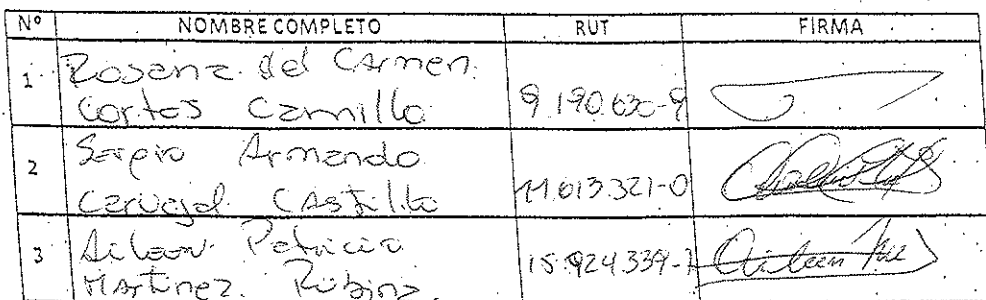 Nº NOMBRE COMPLETO RUT FIRMA
1 Rosana del Carmen
Cortes Camillo 9.190.630-9
2 Sergio Armando
Carvajal Castillo 11.613.321-0
3 Aileen Patricia
Martinez Rubina 15.924.339-